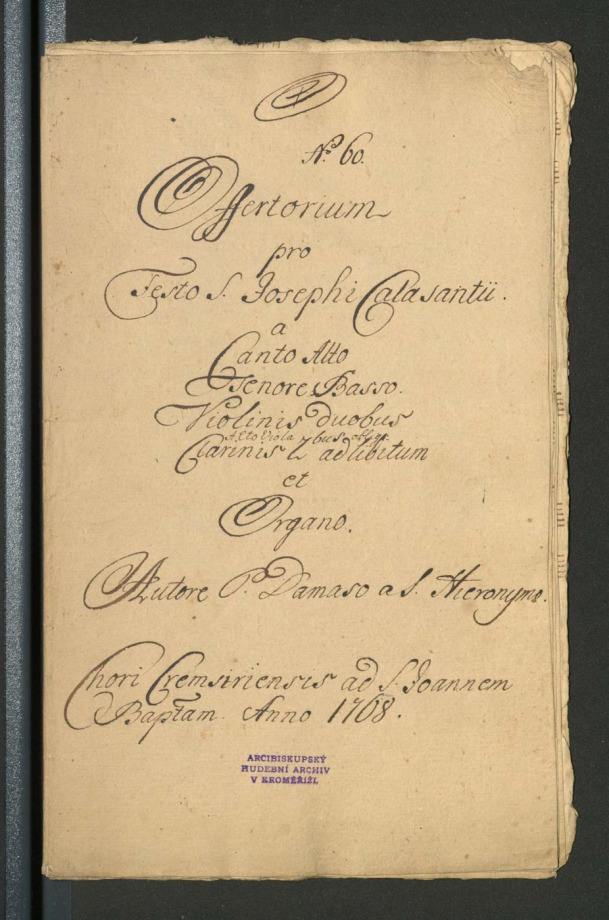 No. 60.
Offertorium
pro
Festo S. Josephi Calasantii.
a
Canto Alto
Tenore Basso.
Violinis duobus
Alto Viola
Clarinis 2bus ad libitum
et
Organo.
Autore P. Damaso a S. Hieronymo.
Chori Cremsiriensis ad S. Joannem
Baptam. Anno 1768.
ARCIBISKUPSKÝ
HUDEBNÍ ARCHIV
V KROMĚŘÍŽI.